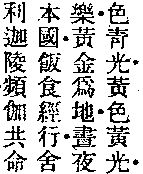 色青光黃色黃光
樂黃金爲地晝夜
本國飯食經行舍
利迦陵頻伽共命